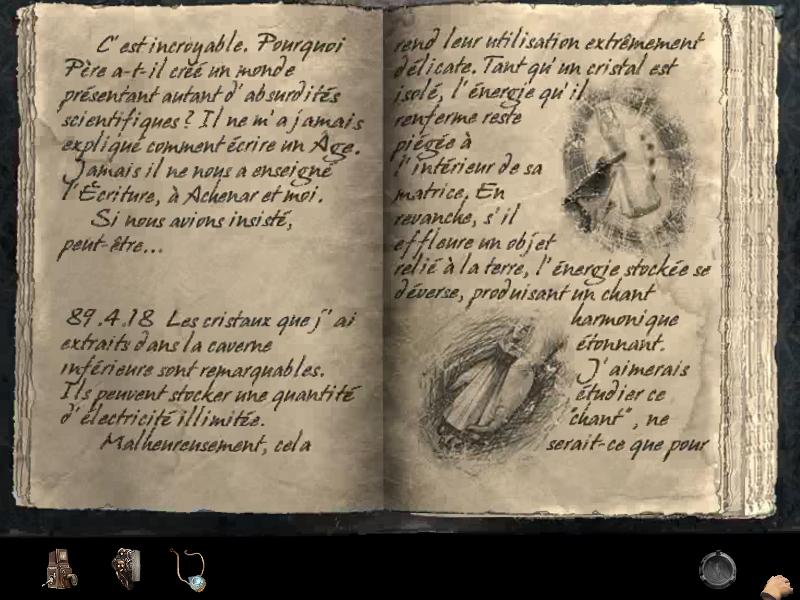 C'est incroyable. Pourquoi
Père a-t-il créé un monde
présentant autant d'absurdités
scientifiques ? Il ne m'a jamais
expliqué comment écrire un Âge.
Jamais il ne nous a enseigné
l'Écriture, à Achenar et moi.
Si nous avions insisté,
peut-être...
89.4.18 Les cristaux que j'ai
extraits dans la caverne
inférieure sont remarquables.
Ils peuvent stocker une quantité
d'électricité illimitée.
Malheureusement, cela
rend leur utilisation extrêmement
délicate. Tant qu'un cristal est
isolé, l'énergie qu'il
renferme reste
piégée à
l'intérieur de sa
matrice. En
revanche, s'il
effleure un objet
relié à la terre, l'énergie stockée se
déverse, produisant un chant
harmonique
étonnant.
J'aimerais
étudier ce
"chant", ne
serait-ce que pour